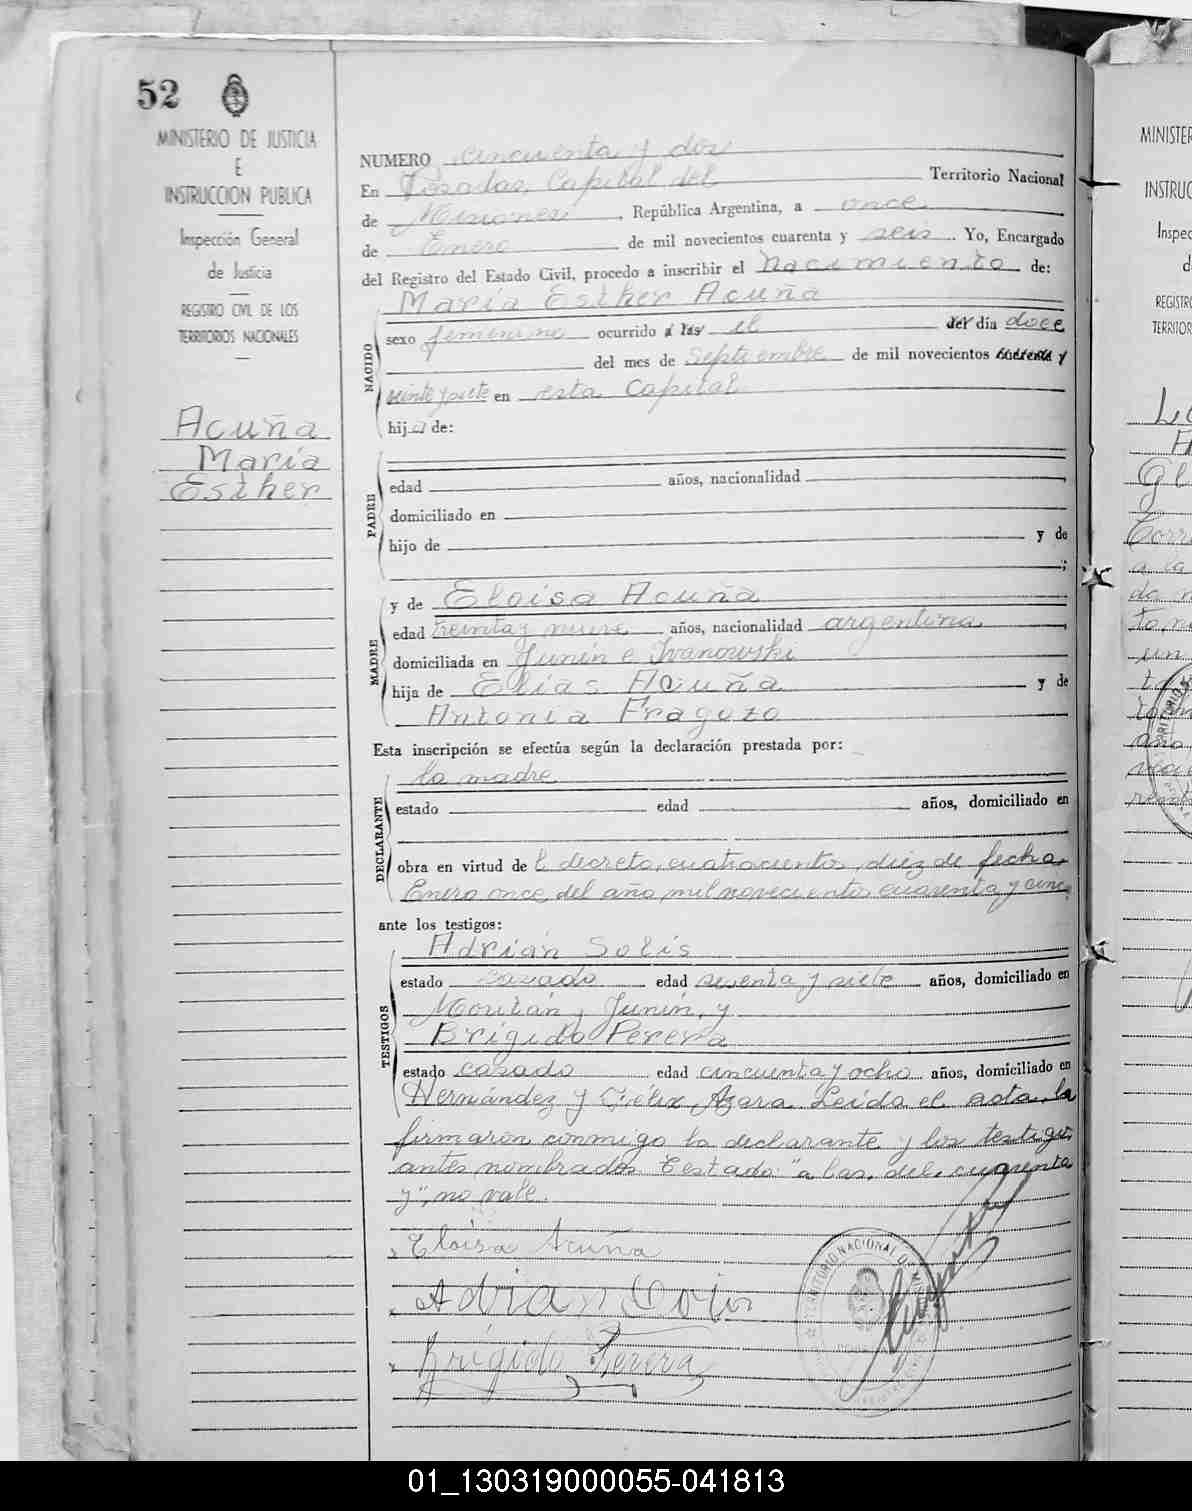 52
MINISTERIO DE JUSTICIA
E
INSTRUCCION PUBLICA
Inspección General
de Justicia
REGISTRO CIVIL DE LOS
TERRITORIOS NACIONALES
Acuña
María
Esther
NUMERO cincuenta y dos
En Posadas, Capital del Territorio Nacional
de Misiones, República Argentina, a once
de Enero de mil novecientos cuarenta y seis. Yo, Encargado
del Registro del Estado Civil, procedo a inscribir el nacimiento de:
NACIDO
María Esther Acuña
sexo femenino ocurrido a las el del día doce
del mes de Septiembre de mil novecientos cuarenta y
veinte y siete en esta Capital
hija de:
PADRE
edad años, nacionalidad
domiciliado en
hijo de y de
;
MADRE
y de Eloisa Acuña
edad treinta y nueve años, nacionalidad argentina
domiciliada en Junín e Ivanowski
hija de Elías Acuña y de
Antonia Fragozo
Esta inscripción se efectúa según la declaración prestada por:
DECLARANTE
la madre
estado edad años, domiciliado en
obra en virtud de l decreto, cuatrocientos, diez de fecha
Enero once, del año, mil novecientos cuarenta y cinco
ante los testigos:
TESTIGOS
Adrián Solís
estado casado edad y siete años, domiciliado en
y Junín, y
Brígido Perera
estado casado edad cincuenta y ocho años, domiciliado en
Hernández y Félix Azara. Leída el acta, la
firmaron conmigo la declarante y los testigos
antes nombrados. Testado: "a las, del, cuarenta
y", no vale.
Eloisa Acuña
Adrian Solis
Brígido Perera
TERRITORIO NACIONAL D
MINISTER
INSTRUC
Inspec
d
REGISTRO
TERRITOR
01_130319000055-041813